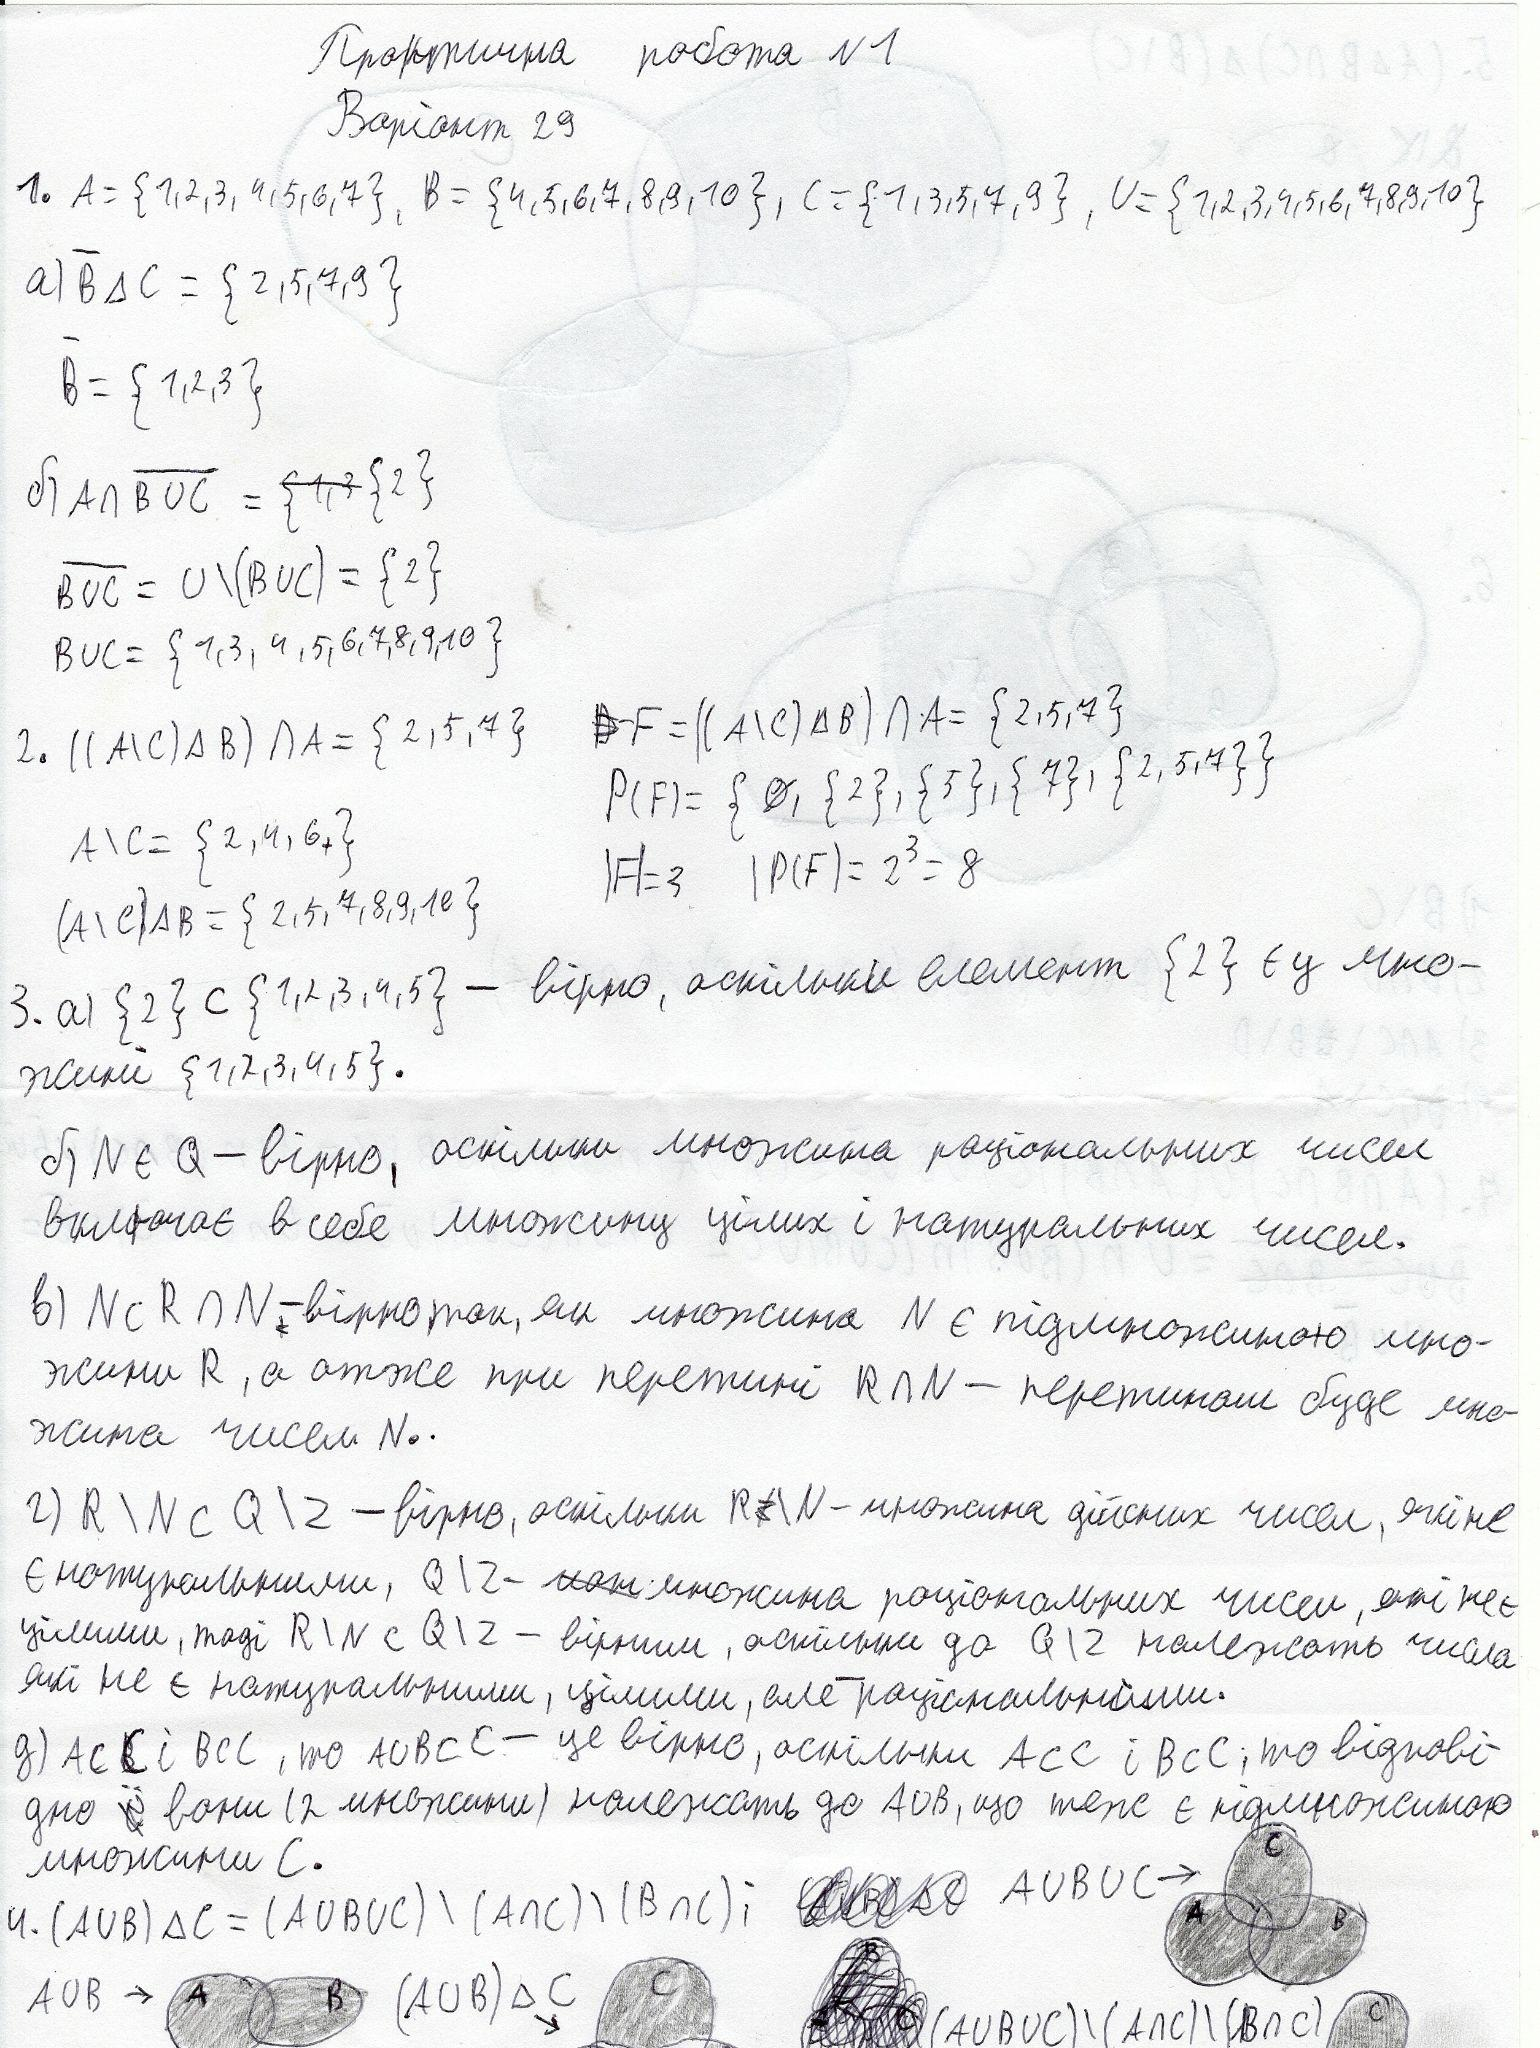 Практична робота №1
Варіант 29
1. A = {1,2,3,4,5,6,7}, B = {4,5,6,7,8,9,10}, C = {1,3,5,7,9}, U = {1,2,3,4,5,6,7,8,9,10}
а) B̅ Δ C = {2,5,7,9}
B̅ = {1,2,3}
б) A∩B̅U̅C̅ = {1,3 {2}
B̅U̅C̅ = U\(BUC) = {2}
BUC = {1,3,4,5,6,7,8,9,10}
2. ((A\C)ΔB)∩A = {2,5,7}
A\C = {2,4,6}
(A\C)ΔB = {2,5,7,8,9,10}
F = ((A\C)ΔB)∩A = {2,5,7}
P(F) = {∅, {2}, {5}, {7}, {2,5,7}}
|F|=3 |P(F)= 2³ = 8
3. а) {2} ⊂ {1,2,3,4,5} – вірно, оскільки елемент {2} є у мно-
жині {1,2,3,4,5}.
б) N ∈ Q – вірно, оскільки множина раціональних чисел
включає в себе множину цілих і натуральних чисел.
в) N⊂R∩N – вірно так, як множина N є підмножиною мно-
жини R, а отже при перетині R∩N – перетином буде мно-
жина чисел N.
г) R\N ⊂ Q\Z – вірно, оскільки R\N – множина дійсних чисел, які не
є натуральними, Q\Z – множина раціональних чисел, які не є
цілими, тоді R\N ⊂ Q\Z – вірним, оскільки до Q\Z належать числа
які не є натуральними, цілими, але раціональними.
д) A⊂C і B⊂C, то AUB⊂C – це вірно, оскільки A⊂C і B⊂C, то відпові-
дно вони (2 множини) належать до AUB, що теж є підмножиною
множини C.
4. (AUB)ΔC = (AUBUC)\(A∩C)\(B∩C); AUBUC →
C
A B
AUB → A B (AUB)ΔC C (AUBUC)\(A∩C)\(B∩C) C